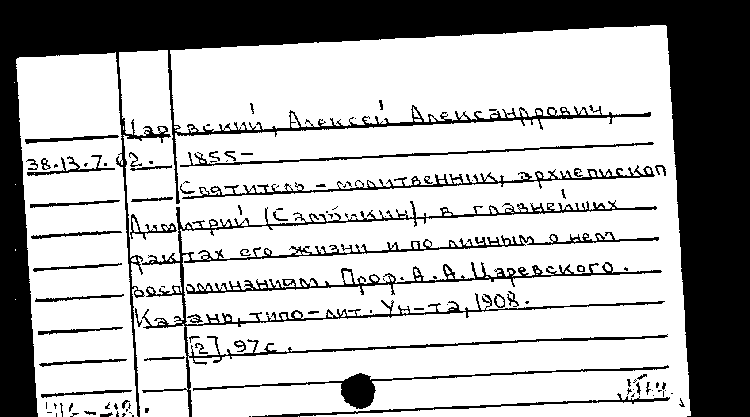 Царевский, Алексей Александрович,
38.13.7.62. 1855-
Святитель-молитвенник, архиепископ
Димитрий (Самбикин), в главнейших
фактах его жизни и по личным о нем
воспоминаниям. Проф. А.А. Царевского.
Казань, типо-лит. Ун-та, 1908.
[2], 97 с.